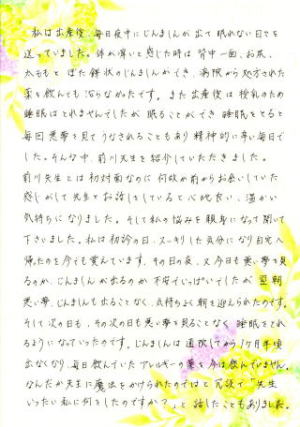 私は出産後、毎日夜中にじんましんが出て眠れない日々を
送っていました。体が痒いと感じた時は背中一面、お尻、
太ももとぼた餅状のじんましんができ、病院から処方された
薬を飲んでも治らなかったです。また出産後は授乳のため
睡眠はとれませんでしたが、眠ることができ睡眠をとると
毎回悪夢を見てうなされることもあり精神的に辛い毎日で
した。そんな中、前川先生を紹介していただきました。
前川先生とは初対面なのに何故か前からお会いしていた
感じがして先生とお話をしていると心地良い、温かい
気持ちになりました。そして私の悩みを親身になって聞いて
下さいました。私は初診の日、スッキリした気分になり自宅へ
帰ったのを今でも覚えています。その日の夜、又今日も悪い夢を見
るのか、じんましんが出るのか不安でいっぱいでしたが翌朝
悪い夢、じんましんも出ることなく、気持ちよく朝を迎えられたのです。
そして次の日も、その次の日も悪い夢を見ることなく睡眠をとれ
るようになっていったのです。じんましんは通院してから1ヶ月半頃
出なくなり、毎日飲んでいたアレルギーの薬を今は飲んでいません。
なんだか先生に魔法をかけられたのではと冗談で「先生
いったい私に何をしたのですか？」と話したこともありました。